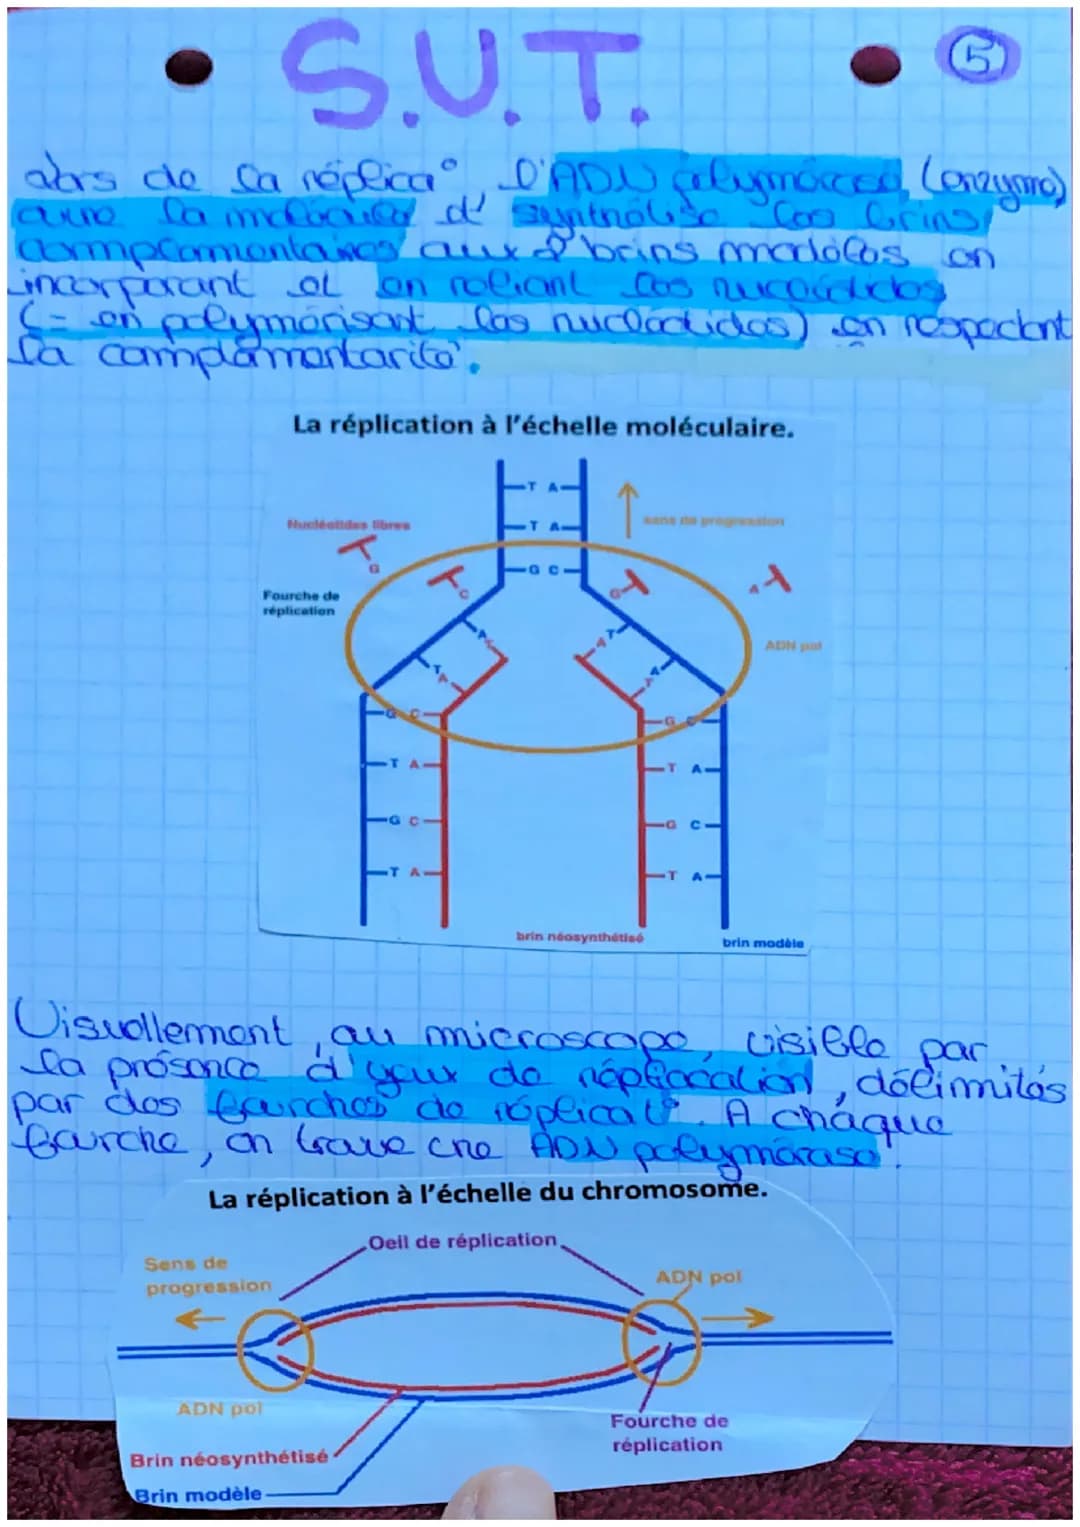 S.V.T.
5
alors de la réplica°, l'ADN polymérase (enzyme)
aure la molécule d' synthétise les brins
complémentaires aux 2 brins modèles en
incorporant et en reliant les nucléotides
(= en polymérisant les nucléotides) en respectant
la complémentarité.
La réplication à l'échelle moléculaire.
T A
T A
sens de progression
Nucléotides libres
G C
G
C
G
A
Fourche de
réplication
A T
T A
T A
A T
ADN pol
G C
G C
T A
T A
G C
G C
T A
T A
brin néosynthétisé
brin modèle
Visuellement, au microscope, visible par
la présence d'yeux de réplication, délimités
par des fourches de réplicat°. A chaque
fourche, on trouve une ADN polymérase.
La réplication à l'échelle du chromosome.
Oeil de réplication
Sens de
progression
ADN pol
ADN pol
Fourche de
réplication
Brin néosynthétisé
Brin modèle